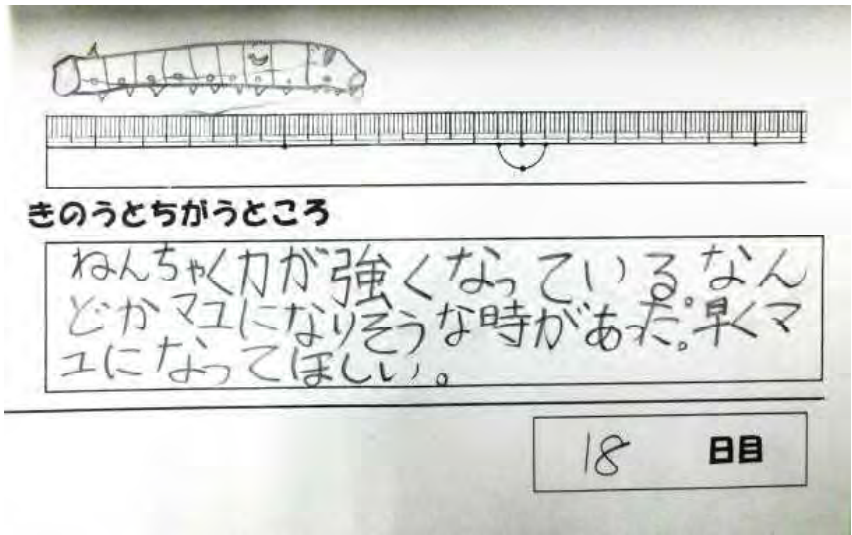 きのうとちがうところ
ねんちゃく力が強くなっている。なん
どかマユになりそうな時があった。早くマ
ユになってほしい。
18 日目